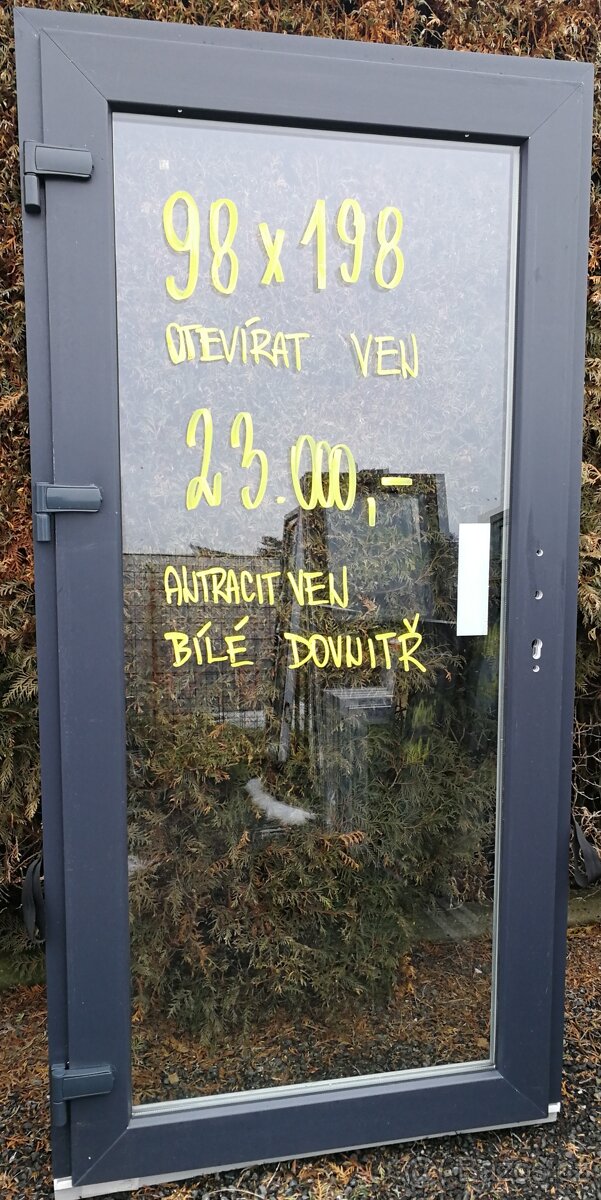 98 x 198
OTEVÍRAT VEN
23.000,-
ANTRACIT VEN
BÍLÉ DOVNITŘ